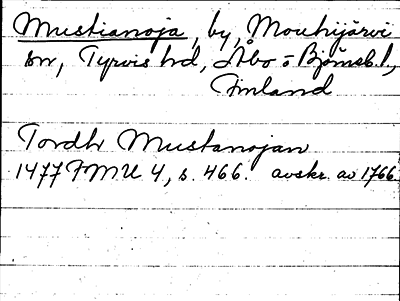 Mustianoja, by, Mouhijärvi
sn, Tyrvis hd, Åbo o Bjömeb. l,
Finland
Tordh Mustanojan
1477 FMU 4, s. 466. avskr. av 1766